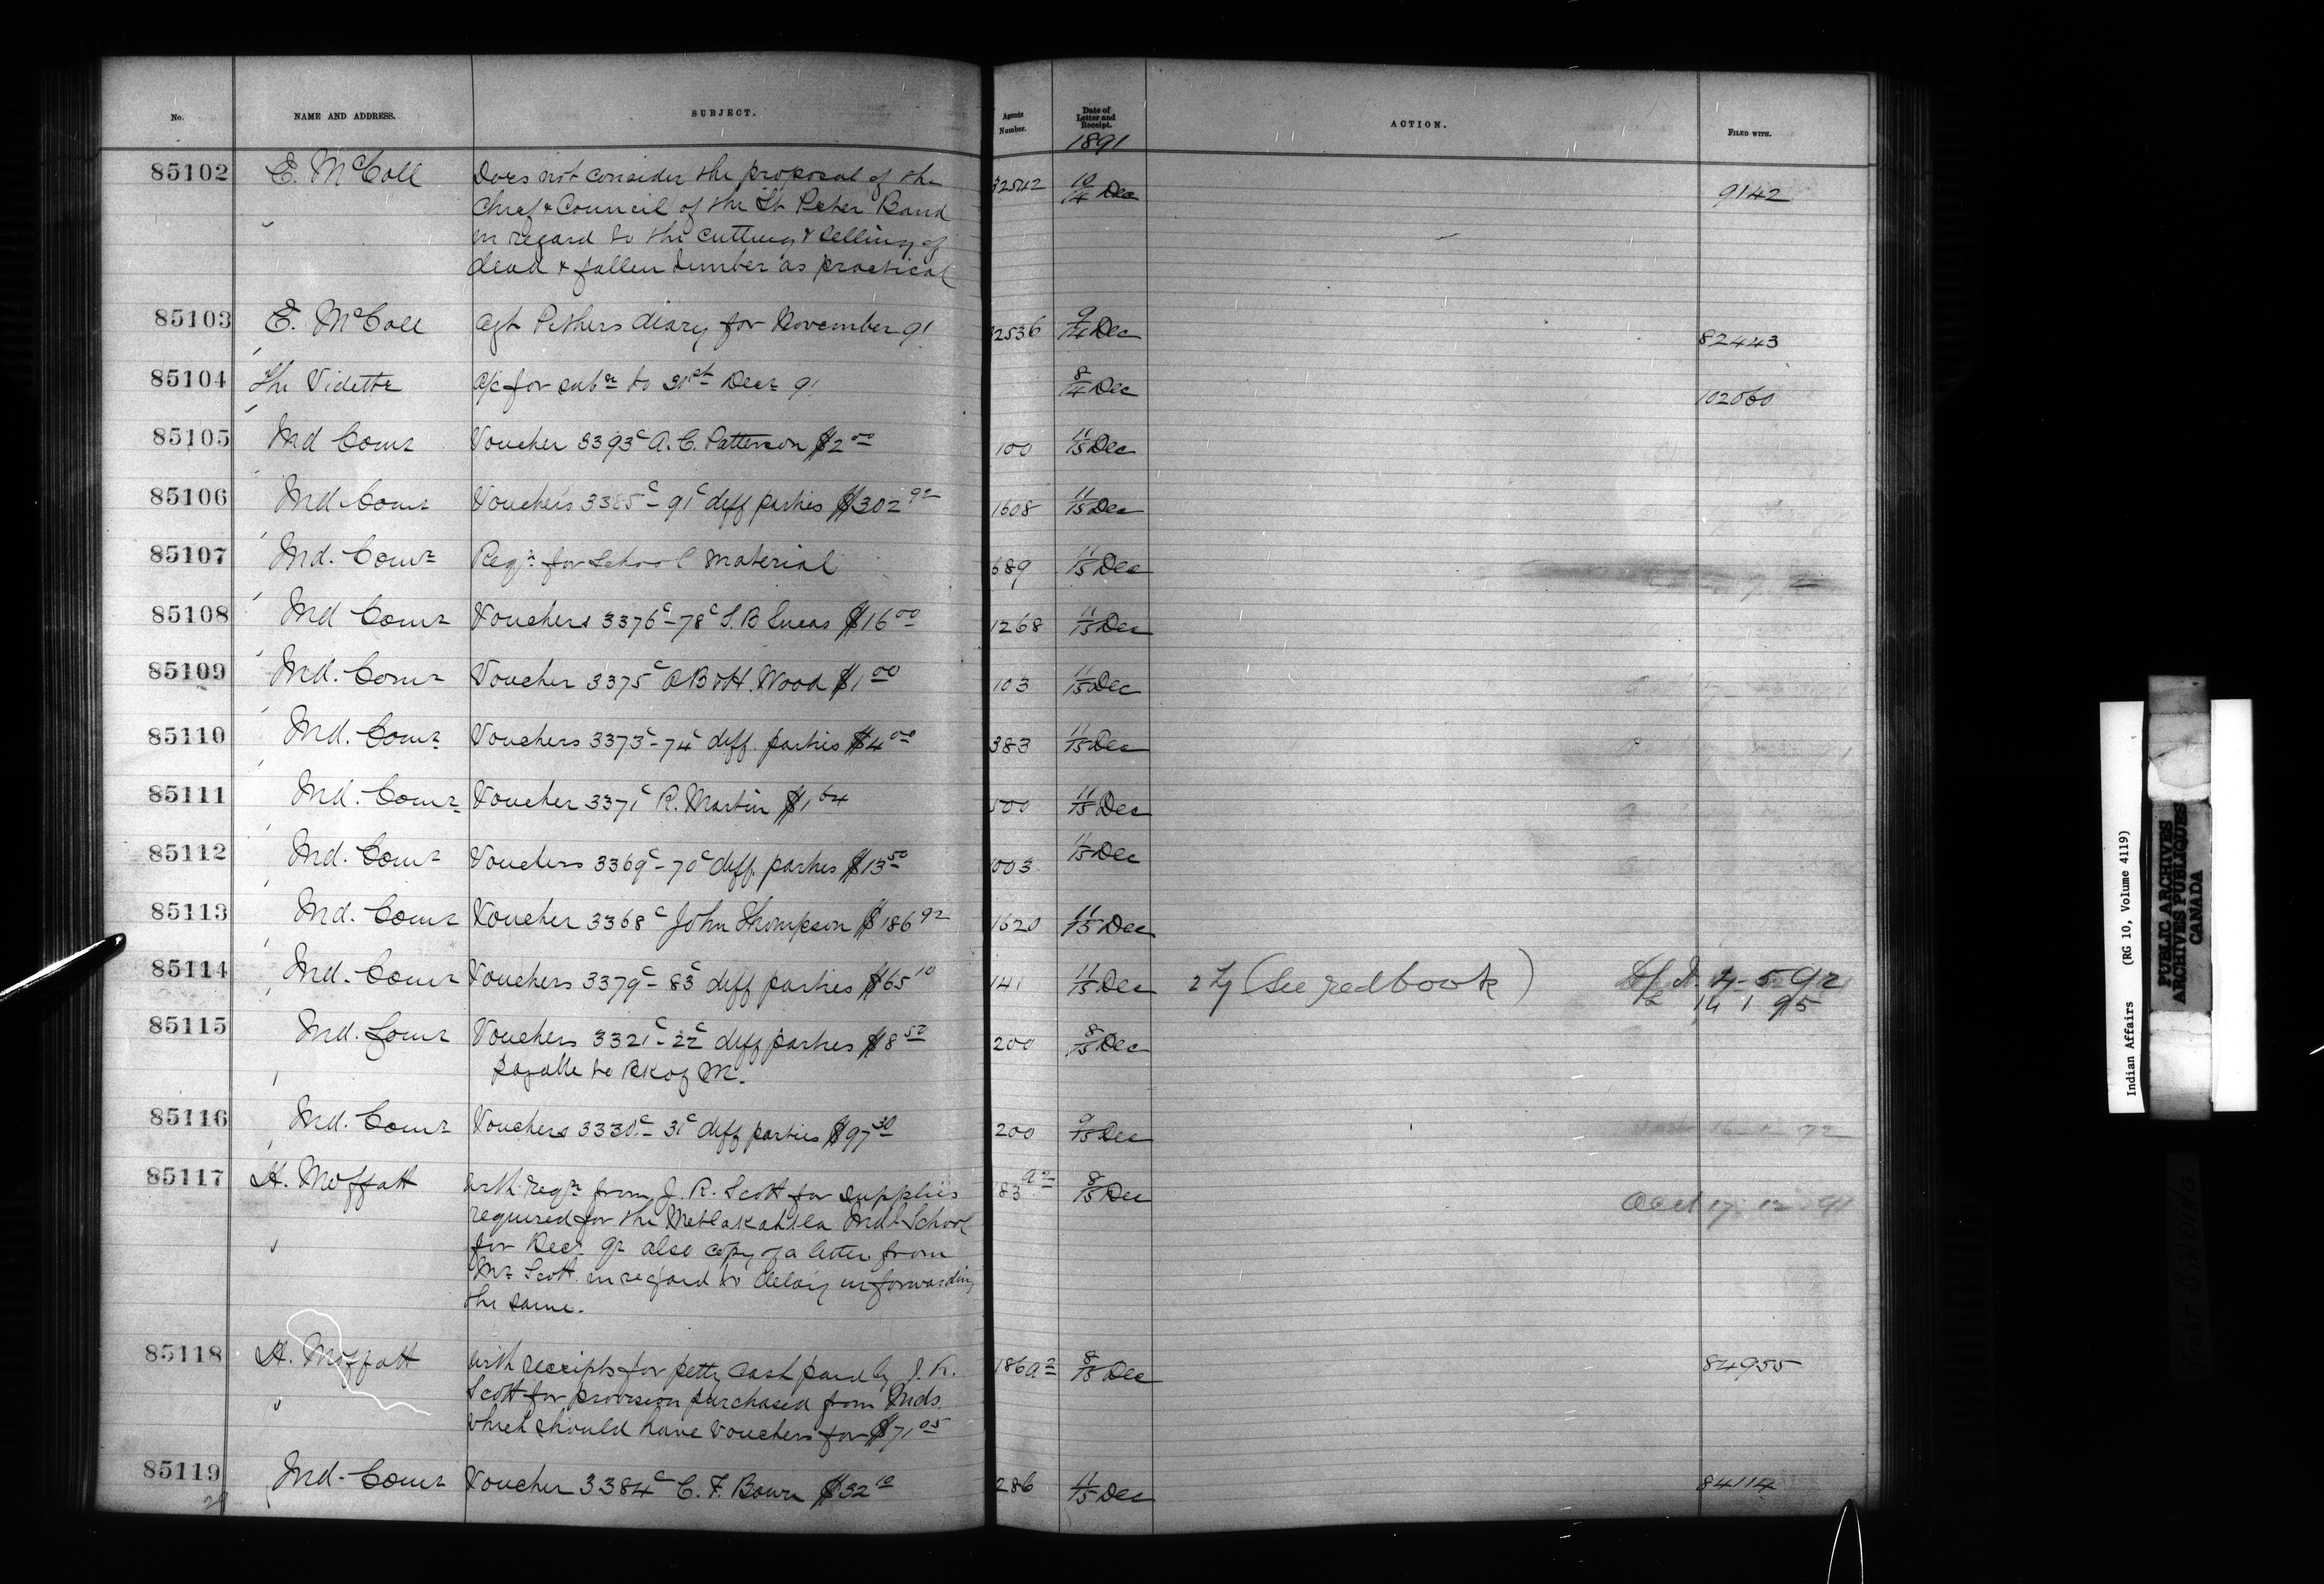 No. NAME AND ADDRESS. SUBJECT. Agents Number. Date of Letter and Receipt. ACTION. FILED WITH.
1891
85102 E. McColl Does not consider the proposal of the 32542 10/14 Dec 9142
Chief & Council of the St Peter Band
in regard to the cutting & selling of
dead & fallen timber as practical
85103 E. McColl Agt Pithers diary for November 91 32536 9/14 Dec 82443
85104 The Vidette a/c for subn to 31st Decr 91 8/14 Dec 102060
85105 Ind Comr Voucher 3393c A. C. Patterson $2 00 100 11/15 Dec
85106 Ind Comr Vouchers 3385c - 91c diff parties $302 92 1608 11/15 Dec
85107 Ind. Comr Reqn for School material 689 11/15 Dec
85108 Ind Comr Vouchers 3376c - 78c S. B Lucas $16 00 1268 11/15 Dec
85109 Ind. Comr Voucher 3375c Wood $1 00 103 11/15 Dec
85110 Ind. Comr Vouchers 3373c - 74c diff. parties $4 00 383 11/15 Dec
85111 Ind. Comr Voucher 3371c R. Martin $1 64 500 11/15 Dec
85112 Ind. Comr Vouchers 3369c - 70c diff. parties $13 50 1003 11/15 Dec
85113 Ind. Comr Voucher 3368c John Thompson $186 92 1620 11/15 Dec
85114 Ind. Comr Vouchers 3379c - 83c diff parties $65 10 141 11/15 Dec (See red book) 4-5-92
14 1 95
85115 Ind. Comr Vouchers 3321c - 22c diff parties $8 50 200 8/15 Dec
payable to
85116 Ind. Comr Vouchers 3330c - 31c diff parties $97 30 200 9/15 Dec
85117 H. Moffatt With reqn from J. R. Scott for supplies 183 a2 8/15 Dec 17 12 91
required for the Metlakahtla Indl School
for Decr 92 also copy of a letter from
Mr Scott in regard to delay in forwarding
the same.
85118 H. Moffatt With receipts for petty cash paid by J. R. 186 a2 8/15 Dec 84955
Scott for provision purchased from Inds.
which should have Vouchers for $71 05
85119 Ind. Comr Voucher 3384c C. F. Bown $32 10 286 11/15 Dec 84114
Indian Affairs (RG 10, Volume 4119)
PUBLIC ARCHIVES
ARCHIVES PUBLIQUES
CANADA